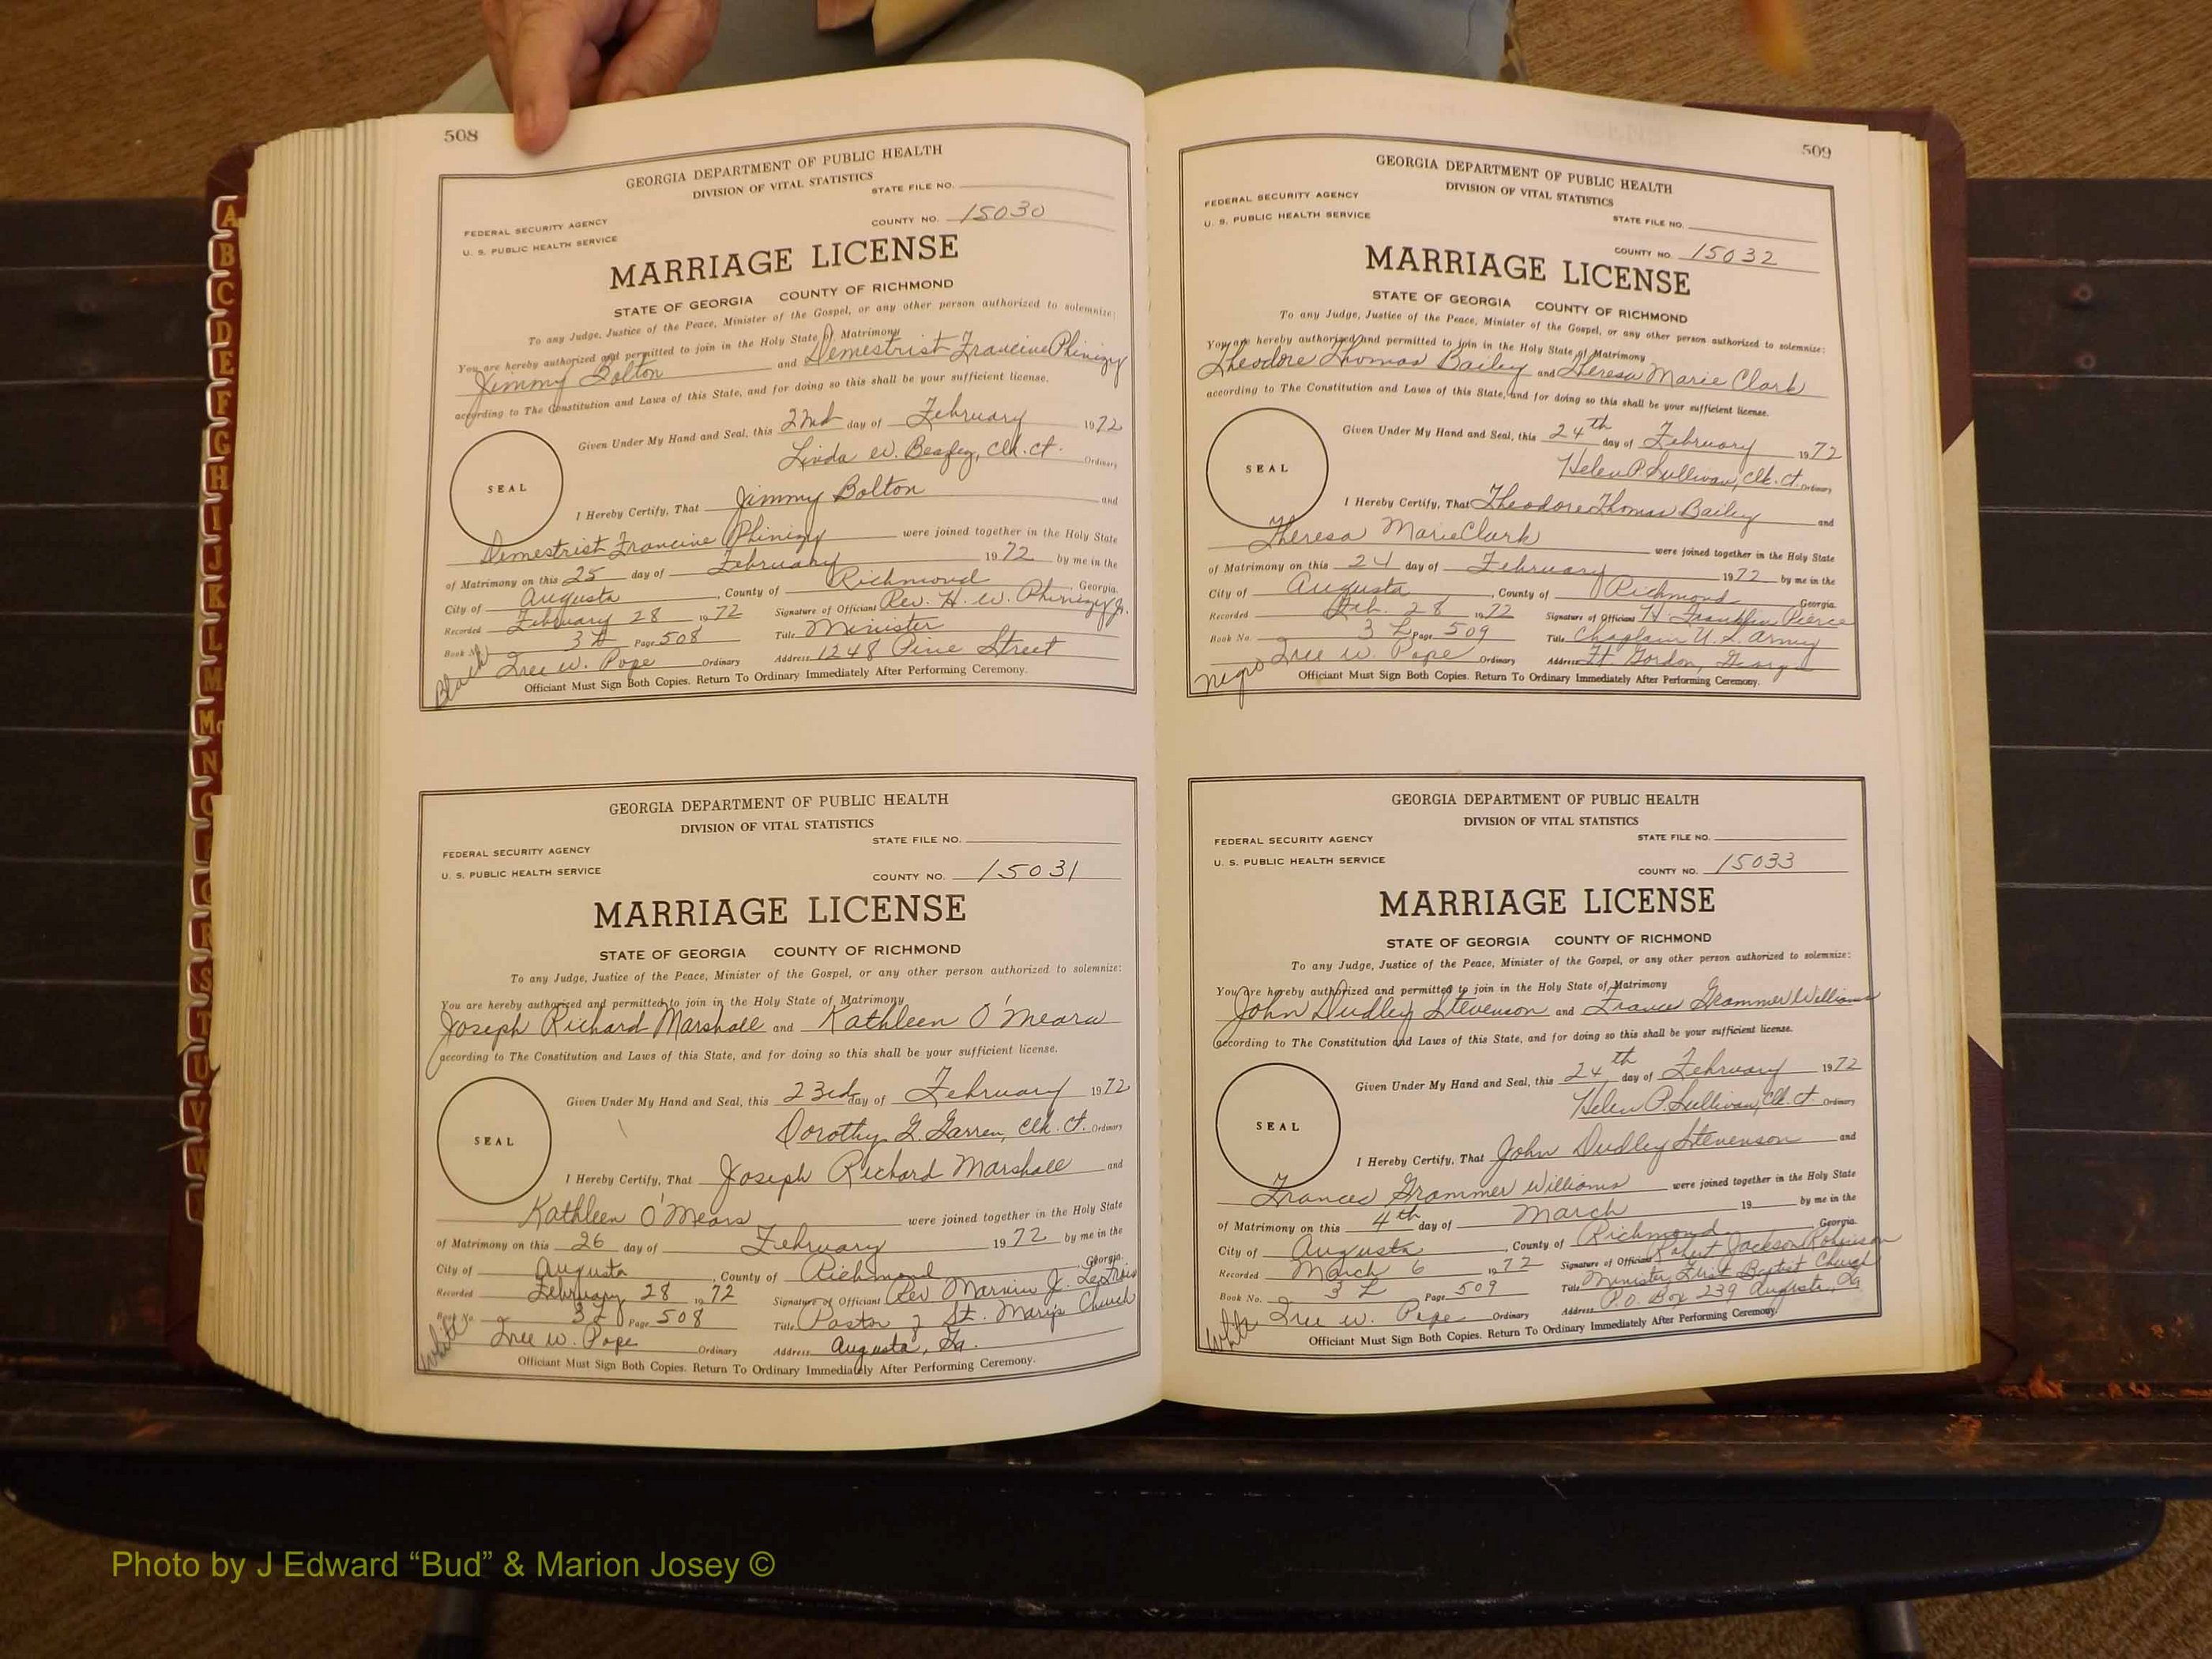 508
GEORGIA DEPARTMENT OF PUBLIC HEALTH
DIVISION OF VITAL STATISTICS
STATE FILE NO.
FEDERAL SECURITY AGENCY
U. S. PUBLIC HEALTH SERVICE
COUNTY NO. 15030
MARRIAGE LICENSE
STATE OF GEORGIA COUNTY OF RICHMOND
To any Judge, Justice of the Peace, Minister of the Gospel, or any other person authorized to solemnize:
You are hereby authorized and permitted to join in the Holy State of Matrimony
Jimmy Bolton and Demestrist Francine Phinizy
according to The Constitution and Laws of this State, and for doing so this shall be your sufficient license.
Given Under My Hand and Seal, this 22nd day of February 1972
Linda W. Clk. Ct. Ordinary
SEAL
I Hereby Certify, That Jimmy Bolton and
Demestrist Francine Phinizy were joined together in the Holy State
of Matrimony on this 25 day of February 1972 by me in the
City of Augusta, County of Richmond, Georgia.
Recorded February 28 1972 Signature of Officiant Rev. H. W. Phinizy Jr.
Book No. 3 L Page 508 Title Minister
Black Inee W. Pope Ordinary Address 1248 Pine Street
Officiant Must Sign Both Copies. Return To Ordinary Immediately After Performing Ceremony.
GEORGIA DEPARTMENT OF PUBLIC HEALTH
DIVISION OF VITAL STATISTICS
STATE FILE NO.
FEDERAL SECURITY AGENCY
U. S. PUBLIC HEALTH SERVICE
COUNTY NO. 15031
MARRIAGE LICENSE
STATE OF GEORGIA COUNTY OF RICHMOND
To any Judge, Justice of the Peace, Minister of the Gospel, or any other person authorized to solemnize:
You are hereby authorized and permitted to join in the Holy State of Matrimony
Joseph Richard Marshall and Kathleen O'Meara
according to The Constitution and Laws of this State, and for doing so this shall be your sufficient license.
Given Under My Hand and Seal, this 23rd day of February 1972
Dorothy G. Garren, Clk. Ct. Ordinary
SEAL
I Hereby Certify, That Joseph Richard Marshall and
Kathleen O'Meara were joined together in the Holy State
of Matrimony on this 26 day of February 1972 by me in the
City of Augusta, County of Richmond, Georgia.
Recorded February 28 1972 Signature of Officiant Rev J.
Book No. 3 L Page 508 Title Pastor of St. Mary's Church
White Inee W. Pope Ordinary Address Augusta, Ga.
Officiant Must Sign Both Copies. Return To Ordinary Immediately After Performing Ceremony.
509
GEORGIA DEPARTMENT OF PUBLIC HEALTH
DIVISION OF VITAL STATISTICS
FEDERAL SECURITY AGENCY
U. S. PUBLIC HEALTH SERVICE
STATE FILE NO.
COUNTY NO. 15032
MARRIAGE LICENSE
STATE OF GEORGIA COUNTY OF RICHMOND
To any Judge, Justice of the Peace, Minister of the Gospel, or any other person authorized to solemnize:
You are hereby authorized and permitted to join in the Holy State of Matrimony
Theodore Thomas Bailey and Theresa Marie Clark
according to The Constitution and Laws of this State, and for doing so this shall be your sufficient license.
Given Under My Hand and Seal, this 24th day of February 1972
Helen P. Sullivan, Clk. Ct. Ordinary
SEAL
I Hereby Certify, That Theodore Thomas Bailey and
Theresa Marie Clark were joined together in the Holy State
of Matrimony on this 24 day of February 1972 by me in the
City of Augusta, County of Richmond Georgia
Recorded Feb. 28 1972 Signature of Officiant H. Franklin Pierce
Book No. 3 L Page 509 Title Chaplain U. S. Army
negro Inee W. Pope Ordinary Address Ft. Gordon, Georgia
Officiant Must Sign Both Copies. Return To Ordinary Immediately After Performing Ceremony.
GEORGIA DEPARTMENT OF PUBLIC HEALTH
DIVISION OF VITAL STATISTICS
FEDERAL SECURITY AGENCY
STATE FILE NO.
U. S. PUBLIC HEALTH SERVICE
COUNTY NO. 15033
MARRIAGE LICENSE
STATE OF GEORGIA COUNTY OF RICHMOND
To any Judge, Justice of the Peace, Minister of the Gospel, or any other person authorized to solemnize:
You are hereby authorized and permitted to join in the Holy State of Matrimony
John Dudley Stevenson and Frances Grammer Williams
according to The Constitution and Laws of this State, and for doing so this shall be your sufficient license.
Given Under My Hand and Seal, this 24th day of February 1972
Helen P. Sullivan, Clk. Ct. Ordinary
SEAL
I Hereby Certify, That John Dudley Stevenson and
Frances Grammer Williams were joined together in the Holy State
of Matrimony on this 4th day of March 19 by me in the
City of Augusta, County of Richmond, Georgia
Recorded March 6 1972 Signature of Officiant Robert Jackson Robinson
Book No. 3 L Page 509 Title Minister, First Baptist Church
White Inee W. Pope Ordinary Address P.O. Box 239 Augusta, Ga
Officiant Must Sign Both Copies. Return To Ordinary Immediately After Performing Ceremony.
A
B
C
D
E
F
G
H
I
J
K
L
M
Mc
N
O
Q
R
S
T
U
V
W
Photo by J Edward “Bud” & Marion Josey ©